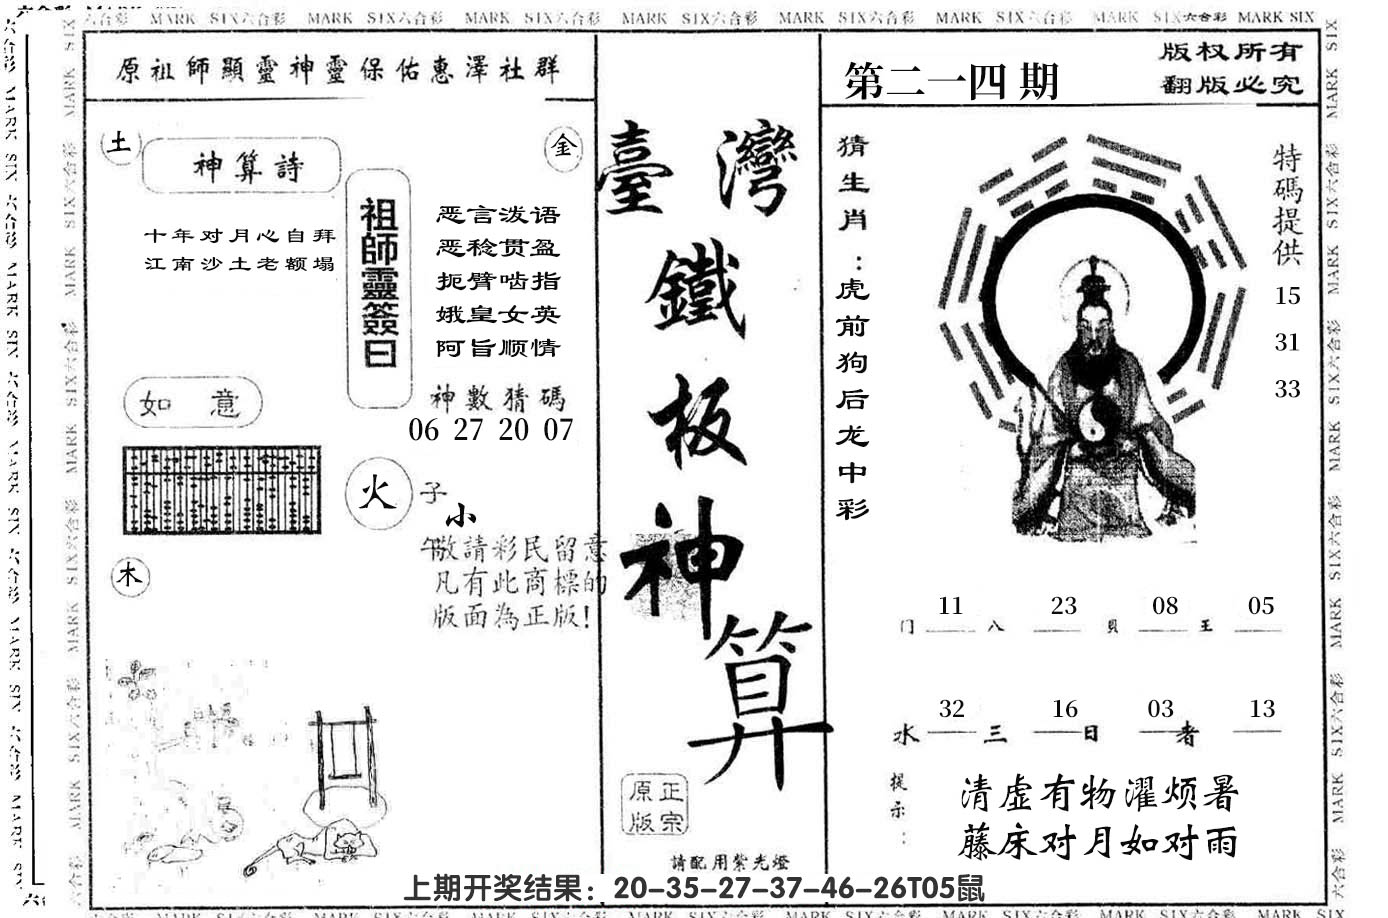 MARK SIX六合彩 MARK SIX六合彩 MARK SIX六合彩 MARK SIX六合彩 MARK SIX六合彩 MARK SIX六合彩 MARK SIX六合彩 MARK SIX
原祖師顯靈神靈保佑惠澤社群
土
神算詩
金
十年对月心自拜
江南沙土老额塌
祖師靈簽曰
恶言泼语
恶稔贯盈
扼臂啮指
娥皇女英
阿旨顺情
神數猜碼
06 27 20 07
如意
火
子
小
午
敬請彩民留意
凡有此商標的
版面為正版!
木
臺灣
鐵
板
神
算
原正
版宗
請配用紫光燈
第二一四期
版权所有
翻版必究
猜生肖:虎前狗后龙中彩
特碼提供
15
31
33
11 23 08 05
门 八 貝 王
32 16 03 13
水 三 日 者
提示:
清虚有物濯烦暑
藤床对月如对雨
上期开奖结果：20-35-27-37-46-26T05鼠